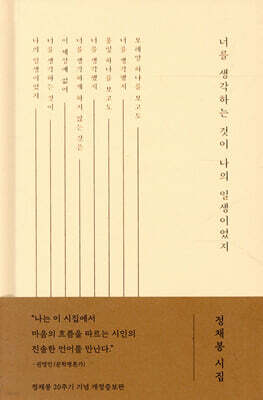 너를 생각하는 것이 나의 일생이었지
모래알 하나를 보고도
너를 생각했지
풀잎 하나를 보고도
너를 생각했지
너를 생각하게 하지 않는 것은
이 세상에 없어
너를 생각하는 것이
나의 일생이었지
정채봉 시집
“나는 이 시집에서
마음의 흐름을 따르는 시인의
진솔한 언어를 만난다.”
- 권영민(문학평론가)
정채봉 20주기 기념 개정증보판